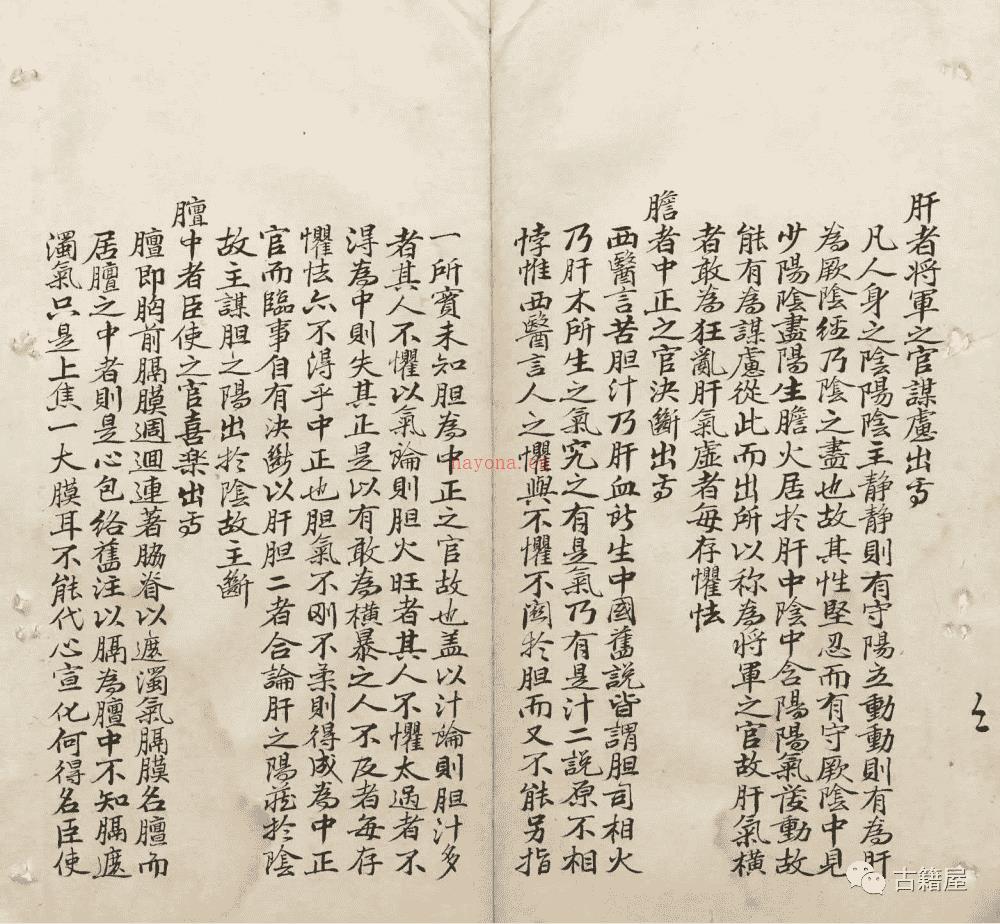 肝者将軍之官謀慮出焉
凡人身之陰陽陰主静静則有守陽主動動則有為肝
為厥陰經乃陰之盡也故其性堅忍而有守厥陰中見
少陽陰盡陽生膽火居扵肝中陰中含陽陽氣發動故
能有為謀慮從此而出所以称為將軍之官故肝氣橫
者敢為狂亂肝氣虛者每存懼怯
膽者中正之官決斷出焉
西醫言苦胆汁乃肝血所生中國舊説皆謂胆司相火
乃肝木所生之氣究之有是氣乃有是汁二説原不相
悖惟西醫言人之懼與不懼不関扵胆而又不能另指
一所實未知胆為中正之官故也盖以汁論則胆汁多
者其人不懼以氣論則胆火旺者其人不懼太過者不
得為中則失其正是以有敢為橫暴之人不及者每存
懼怯亦不得乎中正也胆氣不刚不柔則得成為中正
官而臨事自有決斷以肝胆二者合論肝之陽蔵扵陰
故主謀胆之陽出扵陰故主斷
膻中者臣使之官喜楽出焉
膻即胸前膈膜週迴連著脇脊以遮濁氣膈膜名膻而
居膻之中者則是心包絡舊注以膈為膻中不知膈遮
濁氣只是上焦一大膜耳不能代心宣化何得名臣使
hayona.cn
古籍屋